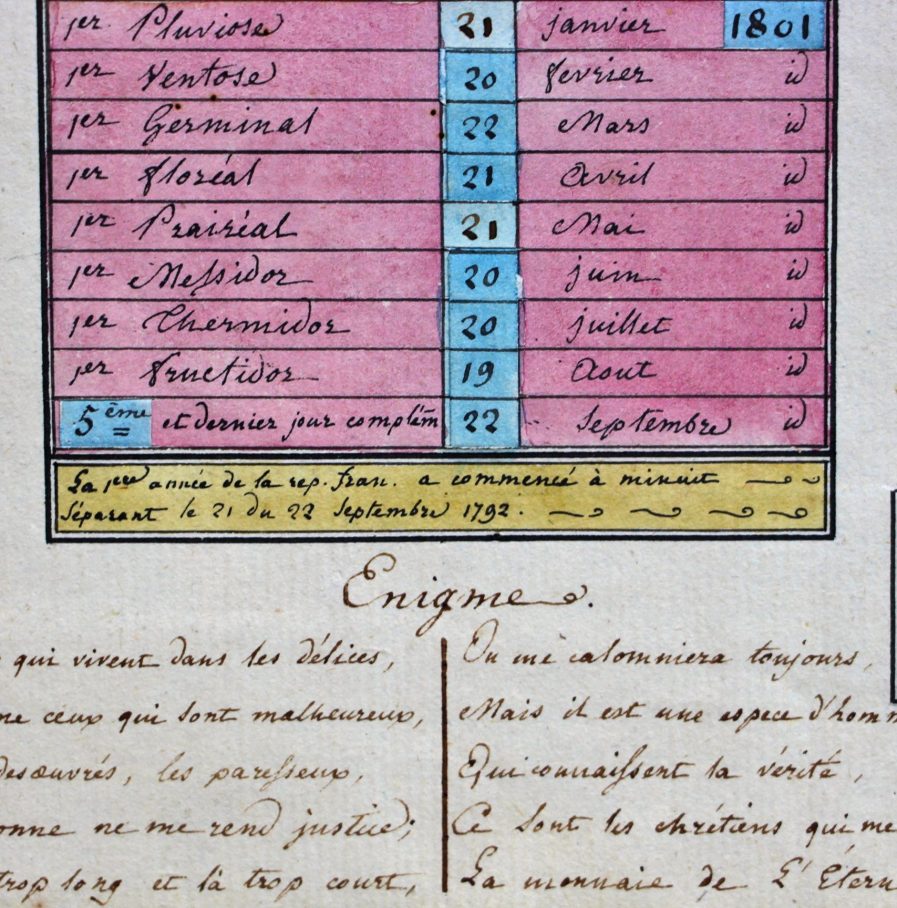 1er Pluviose 21 janvier 1801
1er Ventose 20 fevrier id
1er Germinal 22 Mars id
1er floréal 21 Avril id
1er Prairéal 21 Mai id
1er Messidor 20 juin id
1er Thermidor 20 juillet id
1er fructidor 19 Aout id
5ème et dernier jour complém 22 Septembre id
La 1ere année de la rep. fran. a commencé à minuit
séparant le 21 du 22 Septembre 1792.
Enigme.
qui vivent dans les délices,
ne ceux qui sont malheureux,
desœuvrés, les paresseux,
onne ne me rend justice;
trop long et là trop court,
On me calomniera toujours,
Mais il est une espece d'homm
Qui connaissent la vérité,
Ce sont les chrétiens qui me
La monnaie de L'Étern